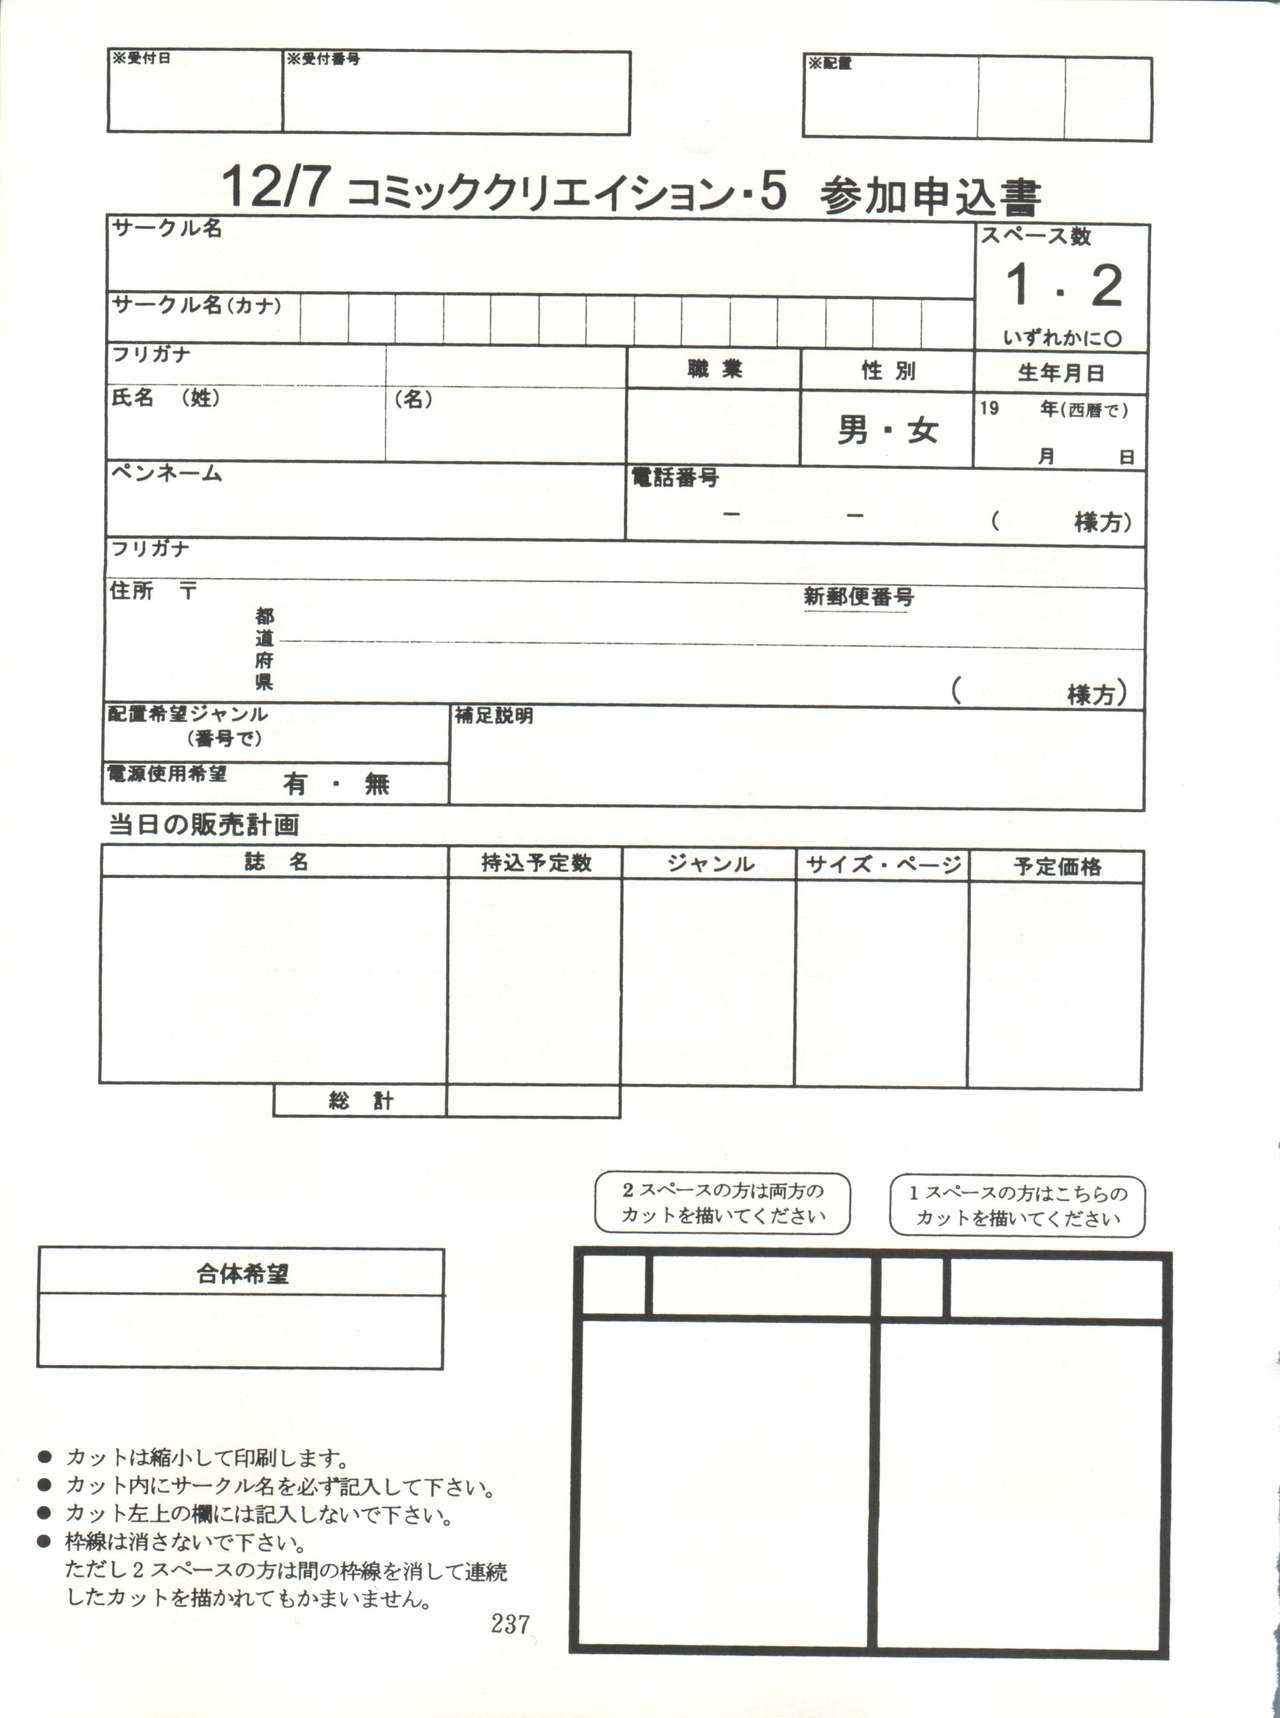 ※受付日 ※受付番号 ※配置
12/7 コミッククリエイション・5 参加申込書
サークル名
スペース数
1・2
いずれかに○
サークル名(カナ)
フリガナ
職業 性別 生年月日
氏名 (姓) (名)
男・女
19 年(西暦で)
月 日
ペンネーム
電話番号
ー ー ( 様方)
フリガナ
住所 〒
新郵便番号
都
道
府
県
( 様方)
配置希望ジャンル
(番号で)
補足説明
電源使用希望 有・無
当日の販売計画
誌名 持込予定数 ジャンル サイズ・ページ 予定価格
総計
2スペースの方は両方の
カットを描いてください
1スペースの方はこちらの
カットを描いてください
合体希望
● カットは縮小して印刷します。
● カット内にサークル名を必ず記入して下さい。
● カット左上の欄には記入しないで下さい。
● 枠線は消さないで下さい。
ただし2スペースの方は間の枠線を消して連続
したカットを描かれてもかまいません。
237